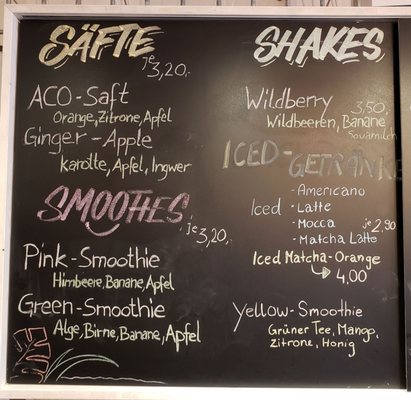 SÄFTE
je 3,20,-
ACO-Saft
Orange, Zitrone, Apfel
Ginger-Apple
Karotte, Apfel, Ingwer
SMOOTHIES
je 3,20,-
Pink-Smoothie
Himbeere, Banane, Apfel
Green-Smoothie
Alge, Birne, Banane, Apfel
SHAKES
Wildberry 3,50,-
Wildbeeren, Banane
Sojamilch
ICED-
GETRÄNKE
- Americano
Iced - Latte
- Mocca je 2,90
- Matcha Latte
Iced Matcha-Orange
4,00
Yellow-Smoothie
Grüner Tee, Mango,
Zitrone, Honig